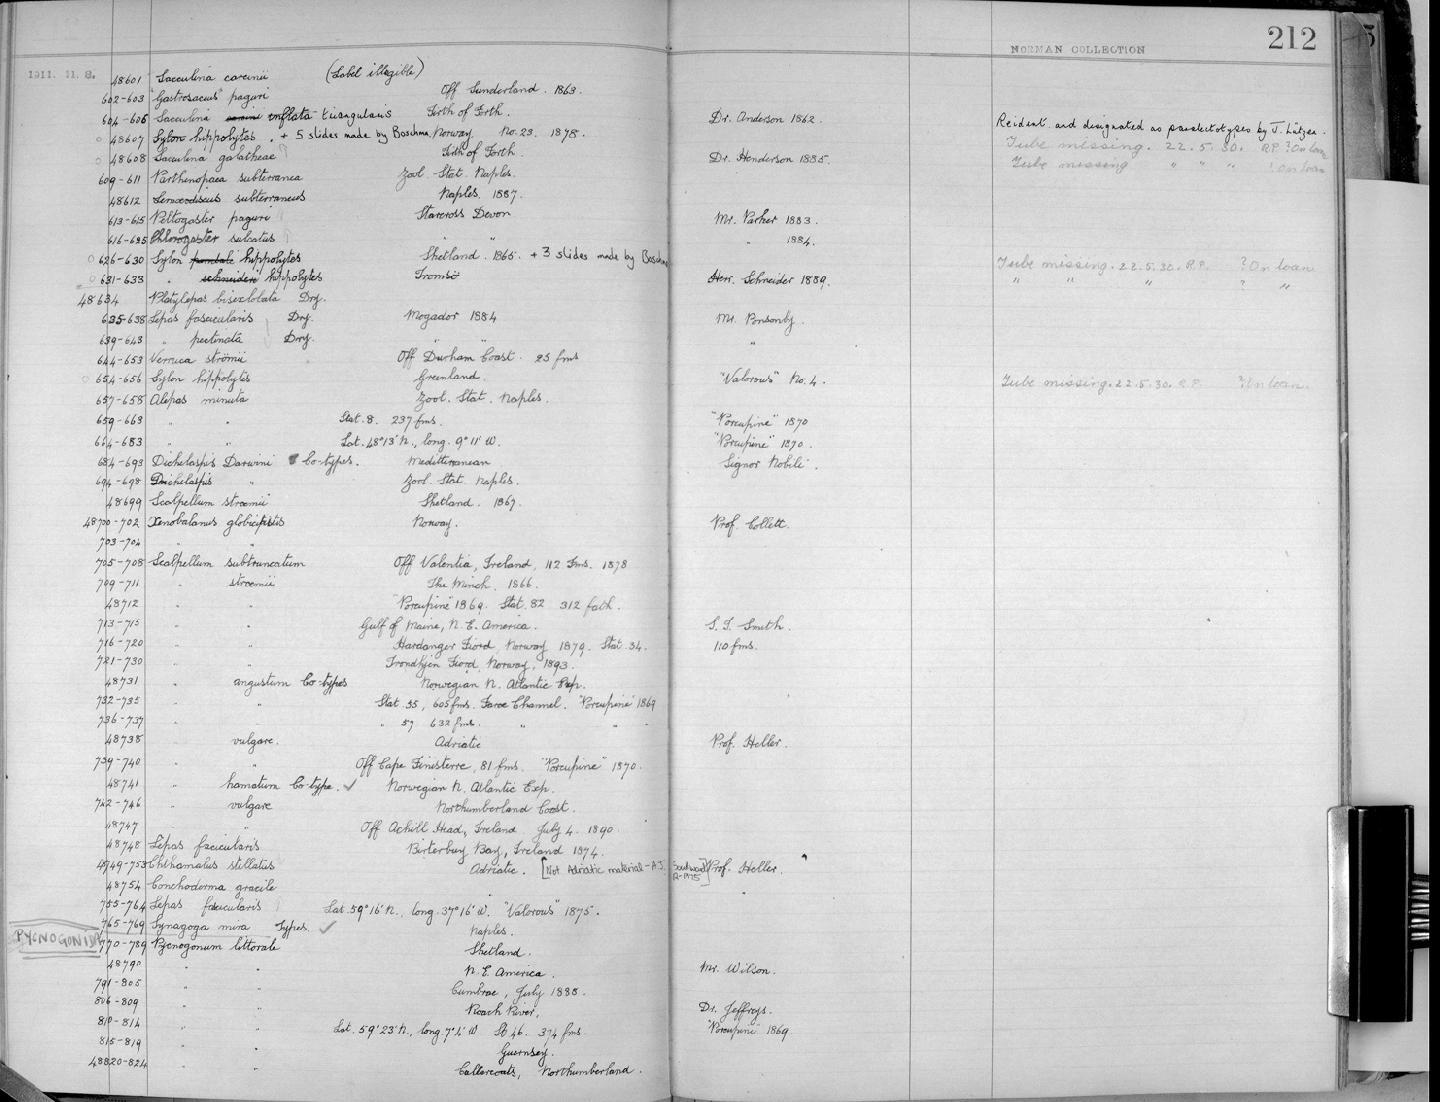 NORMAN COLLECTION 212
1911. 11. 8.
48601 Sacculina carcinii (Label illegible)
602-603 "Gastrosaccus" paguri Off Sunderland. 1863.
604-606 Sacculina carcini inflata triangularis Firth of Forth. Dr. Anderson 1862. Reident. and designated as paralectotypes by J. Lützen.
48607 Sylon hippolytes. + 5 slides made by Boschma. Norway. No. 23. 1878. Tube missing. 22.5.30. R.P. ? On loan
48608 Sacculina galatheae Firth of Forth. Dr. Henderson 1885. Tube missing " " " ? On loan
609-611 Parthenopaea subterranea Zool. Stat. Naples.
48612 subterraneus Naples. 1887.
613-615 Peltogaster paguri Starcross Devon Mr. Parker 1883.
616-625 sulcatus " " " 1884.
626-630 Sylon pandali hippolytes Shetland. 1865. + 3 slides made by Boschma Tube missing. 22.5.30. R.P. ? On loan
631-633 " schneideri hippolytes Tromsö Herr. Schneider 1889. " " " ? "
48634 Platylepas bisexlobata Dry.
635-638 Lepas fascicularis Dry. Mogador 1884 Mr. Ponsonby.
639-643 " pectinata Dry. " " "
644-653 Verruca strömii Off Durham Coast. 25 fms
654-656 Sylon hippolytes Greenland. "Valorous" No. 4. Tube missing. 22.5.30. R.P. ? On loan.
657-658 Alepas minuta Zool. Stat. Naples.
659-663 " " Stat. 8. 237 fms. "Porcupine" 1870
664-683 " " Lat. 48°13' N., long. 9°11' W. "Porcupine" 1870.
684-693 Dichelaspis Darwini Co-types. Mediterranean Signor Nobili.
694-698 Dichelaspis " Zool. Stat. Naples.
48699 Scalpellum strœmii Shetland. 1867.
48700-702 Xenobalanus globicipitis Norway. Prof. Collett.
703-704 " "
705-708 Scalpellum subtruncatum Off Valentia, Ireland, 112 Fms. 1878
709-711 " strœmii The Minch. 1866.
48712 " " "Porcupine" 1869. Stat. 82 312 fath.
713-715 " " Gulf of Maine, N.E. America. S.I. Smith.
716-720 " " Hardanger Fiord, Norway 1879. Stat. 34. 110 fms.
721-730 " " Trondhjem Fiord, Norway, 1893.
48731 " angustum Co-types Norwegian N. Atlantic Exp.
732-735 " " Stat 55, 605 fms. Faroe Channel. "Porcupine" 1869
736-737 " " " 57 632 fms. " " "
48738 " vulgare. Adriatic Prof. Heller.
739-740 " " Off Cape Finisterre, 81 fms. "Porcupine" 1870.
48741 " hamatum Co-type. ✓ Norwegian N. Atlantic Exp.
742-746 " vulgare Northumberland Coast.
48747 " " Off Achill Head, Ireland July 4. 1890.
48748 Lepas fascicularis Birterbuy Bay, Ireland 1874.
48749-753 Chthamalus stellatus Adriatic. [Not Adriatic material - A.J. Southward 2-1975] Prof. Heller.
48754 Conchoderma gracile " "
755-764 Lepas fascicularis Lat. 59°16' N., long. 37°16' W. "Valorous" 1875.
765-769 Synagoga mira Types. ✓ Naples.
PYCNOGONIDA 770-789 Pycnogonum littorale Shetland.
48790 " " N.E. America. Mr. Wilson.
791-805 " " Cumbrae, July 1888.
806-809 " " Roach River, Dr. Jeffreys.
810-814 " " Lat. 59°23' N., long. 7°4' W St 46. 374 fms. "Porcupine" 1869
815-819 " " Guernsey.
48820-824 " " Cullercoats, Northumberland.